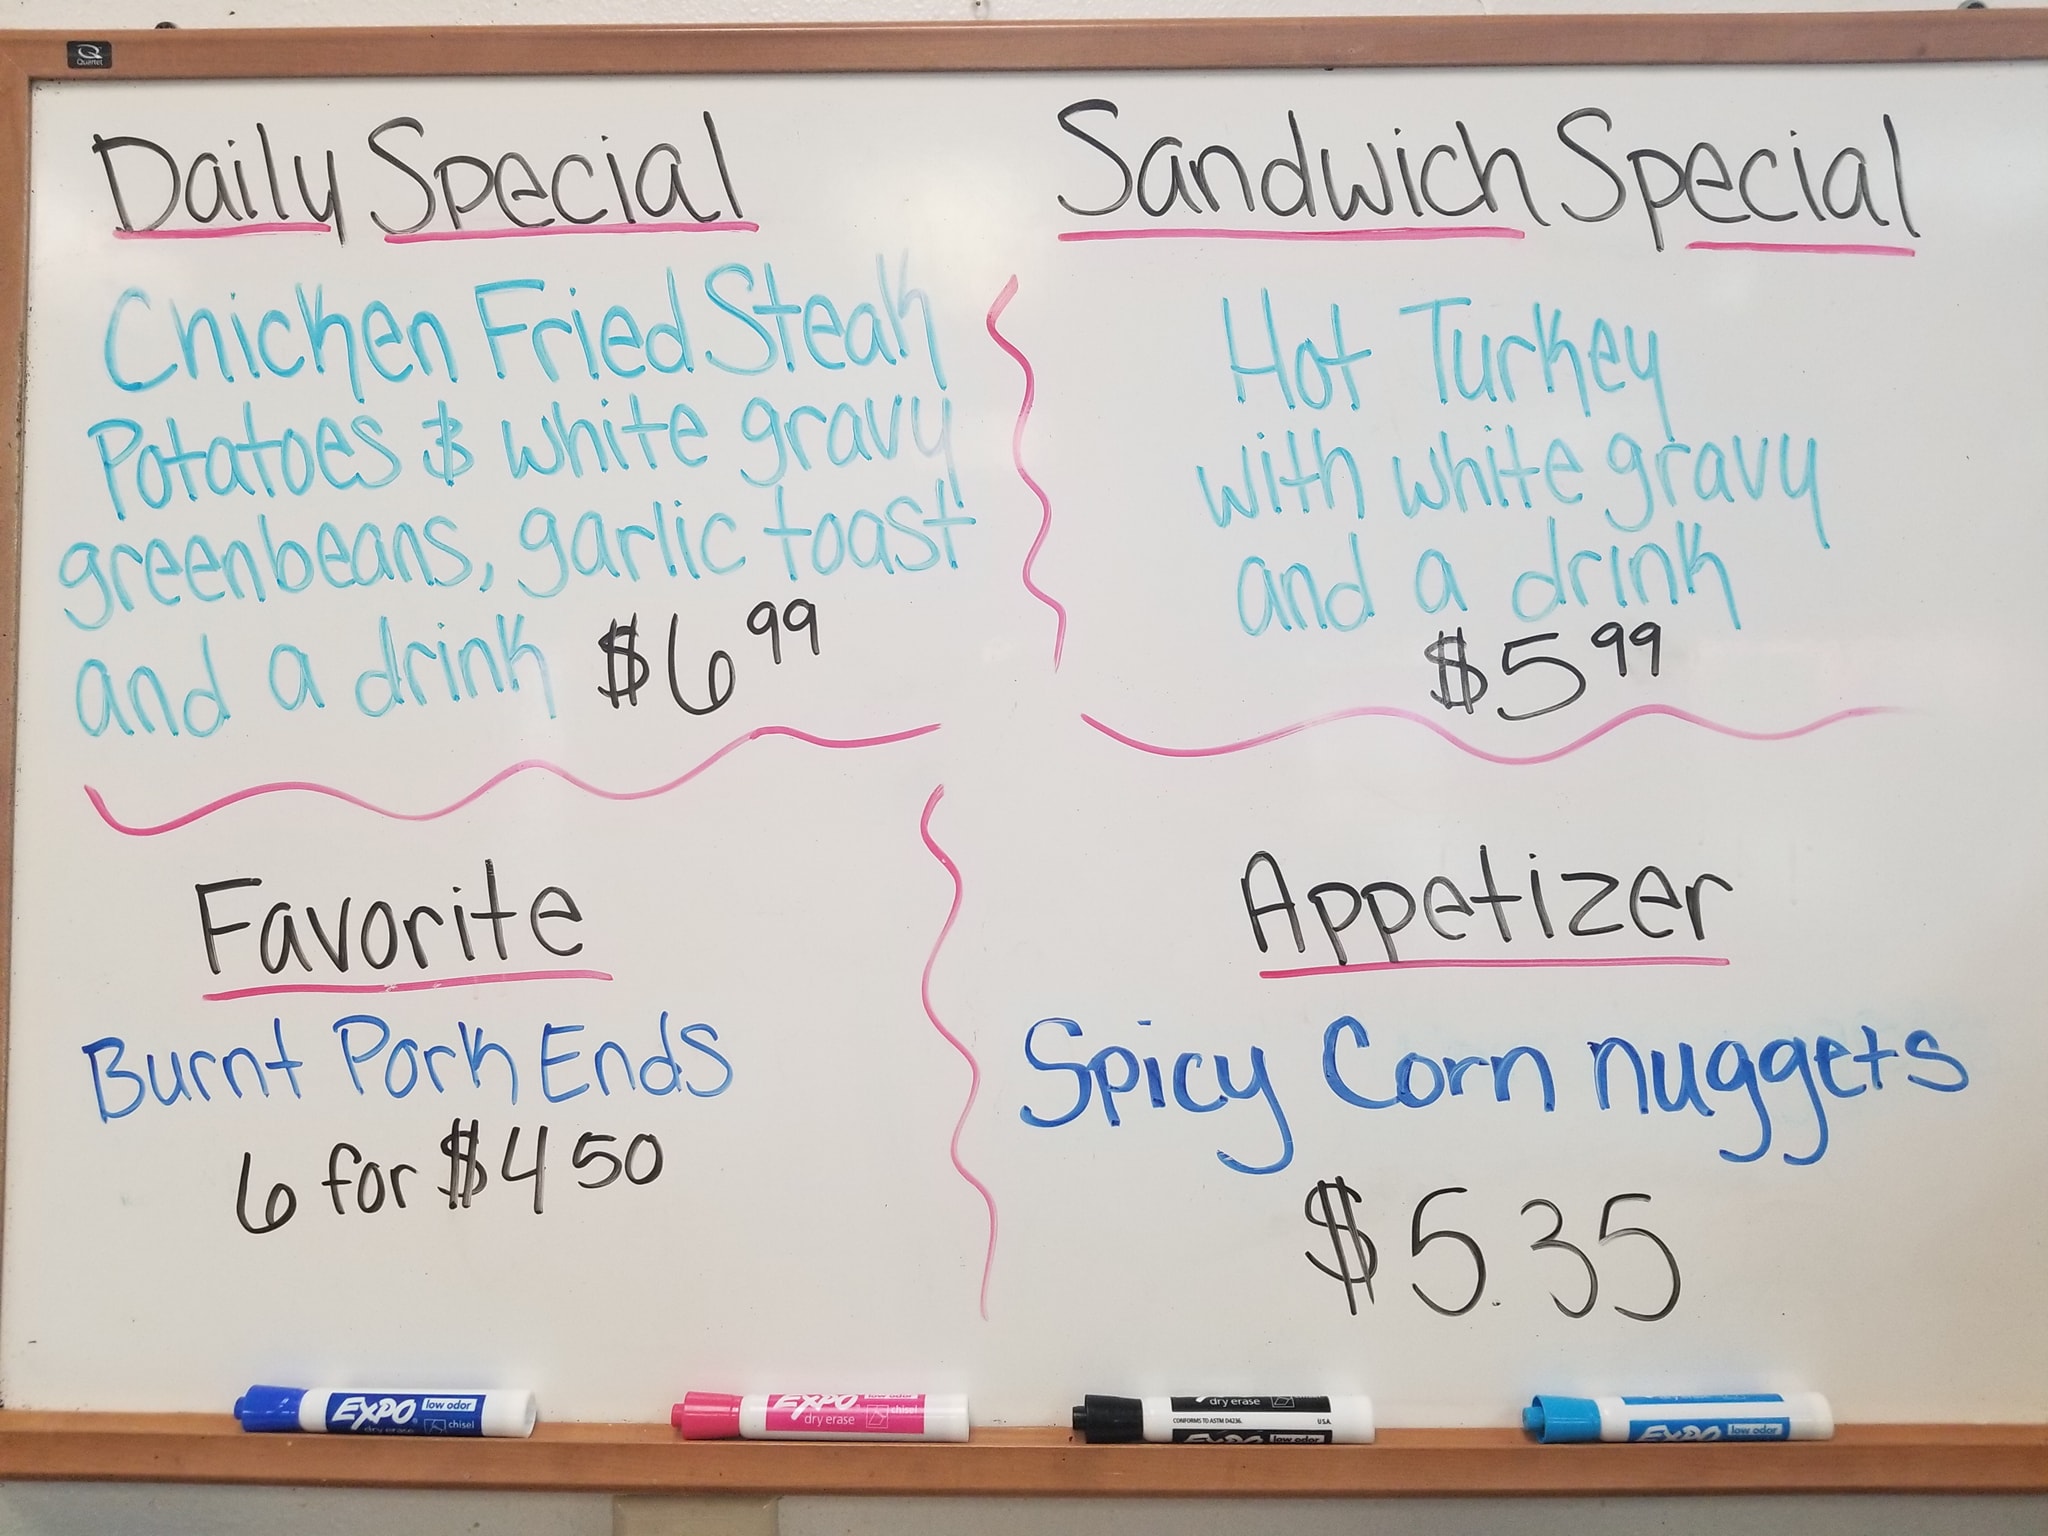 Quartet
Daily Special
Chicken Fried Steak
Potatoes & white gravy
greenbeans, garlic toast
and a drink $6 99
Sandwich Special
Hot Turkey
with white gravy
and a drink
$5 99
Favorite
Burnt Pork Ends
6 for $4 50
Appetizer
Spicy Corn nuggets
$5.35
EXPO low odor
dry erase chisel
EXPO low odor
dry erase chisel
dry erase
CONFORMS TO ASTM D4236. USA
EXPO low odor
EXPO low odor